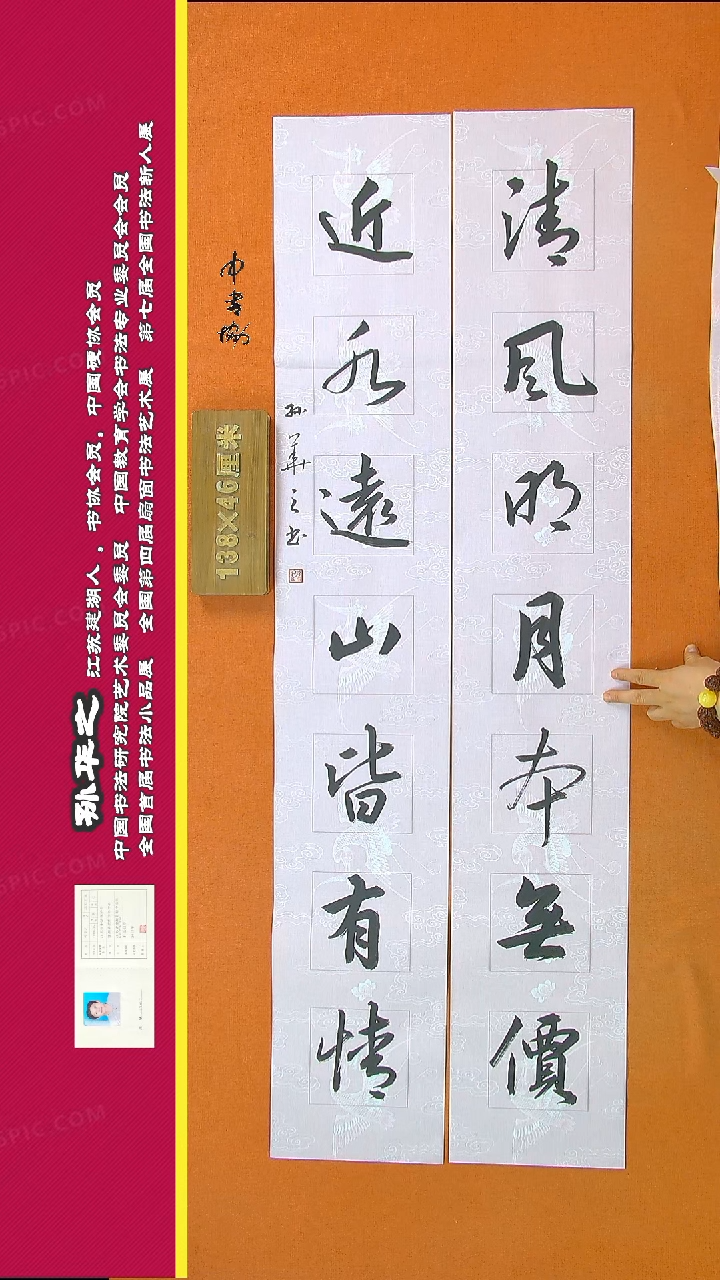 清風明月本無價
近水遠山皆有情
孙華之书
138×46厘米
孙华之 江苏建湖人，书协会员，中国硬协会员
中国书法研究院艺术委员会委员 中国教育学会书法专业委员会会员
全国首届书法小品展 全国第四届扇面书法艺术展 第七届全国书法新人展